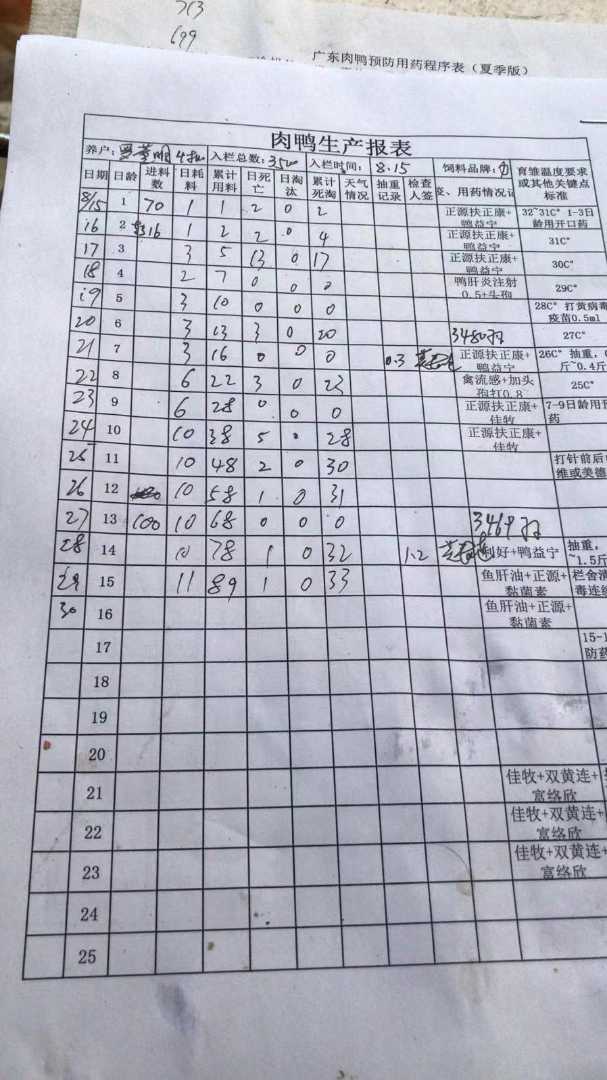 713
699
广东肉鸭预防用药程序表（夏季版）
肉鸭生产报表
养户： 4批 入栏总数：3500 入栏时间：8.15 饲料品牌： 育雏温度要求或其他关键点标准
日期 日龄 进料数 日耗料 累计用料 日死亡 日淘汰 累计死淘 天气情况 抽重记录 检查人签 用药情况
8/15 1 70 1 1 2 0 2 正源扶正康+鸭益宁 32~31C° 1-3日龄用开口药
16 2 1 2 2 0 4 正源扶正康+鸭益宁 31C°
17 3 3 5 13 0 17 正源扶正康+鸭益宁 30C°
18 4 2 7 0 0 0 鸭肝炎注射0.5+头孢 29C°
19 5 3 10 0 0 0 28C° 打黄病毒疫苗0.5ml
20 6 3 13 3 0 20 3480羽 27C°
21 7 3 16 0 0 0 0.3 正源扶正康+鸭益宁 26C° 抽重，斤~0.4斤
22 8 6 22 3 0 23 禽流感+加头孢打0.8 25C°
23 9 6 28 0 0 0 正源扶正康+佳牧 7-9日龄用药
24 10 10 38 5 0 28 正源扶正康+佳牧
25 11 10 48 2 0 30 打针前后 维或美德
26 12 10 58 1 0 31
27 13 100 10 68 0 0 0 3469羽
28 14 10 78 1 0 32 1.2 好+鸭益宁 抽重，~1.5斤
29 15 11 89 1 0 33 鱼肝油+正源+黏菌素 栏舍 毒连
30 16 鱼肝油+正源+黏菌素
17 15-1 防药
18
19
20
21 佳牧+双黄连+富络欣
22 佳牧+双黄连+富络欣
23 佳牧+双黄连+富络欣
24
25